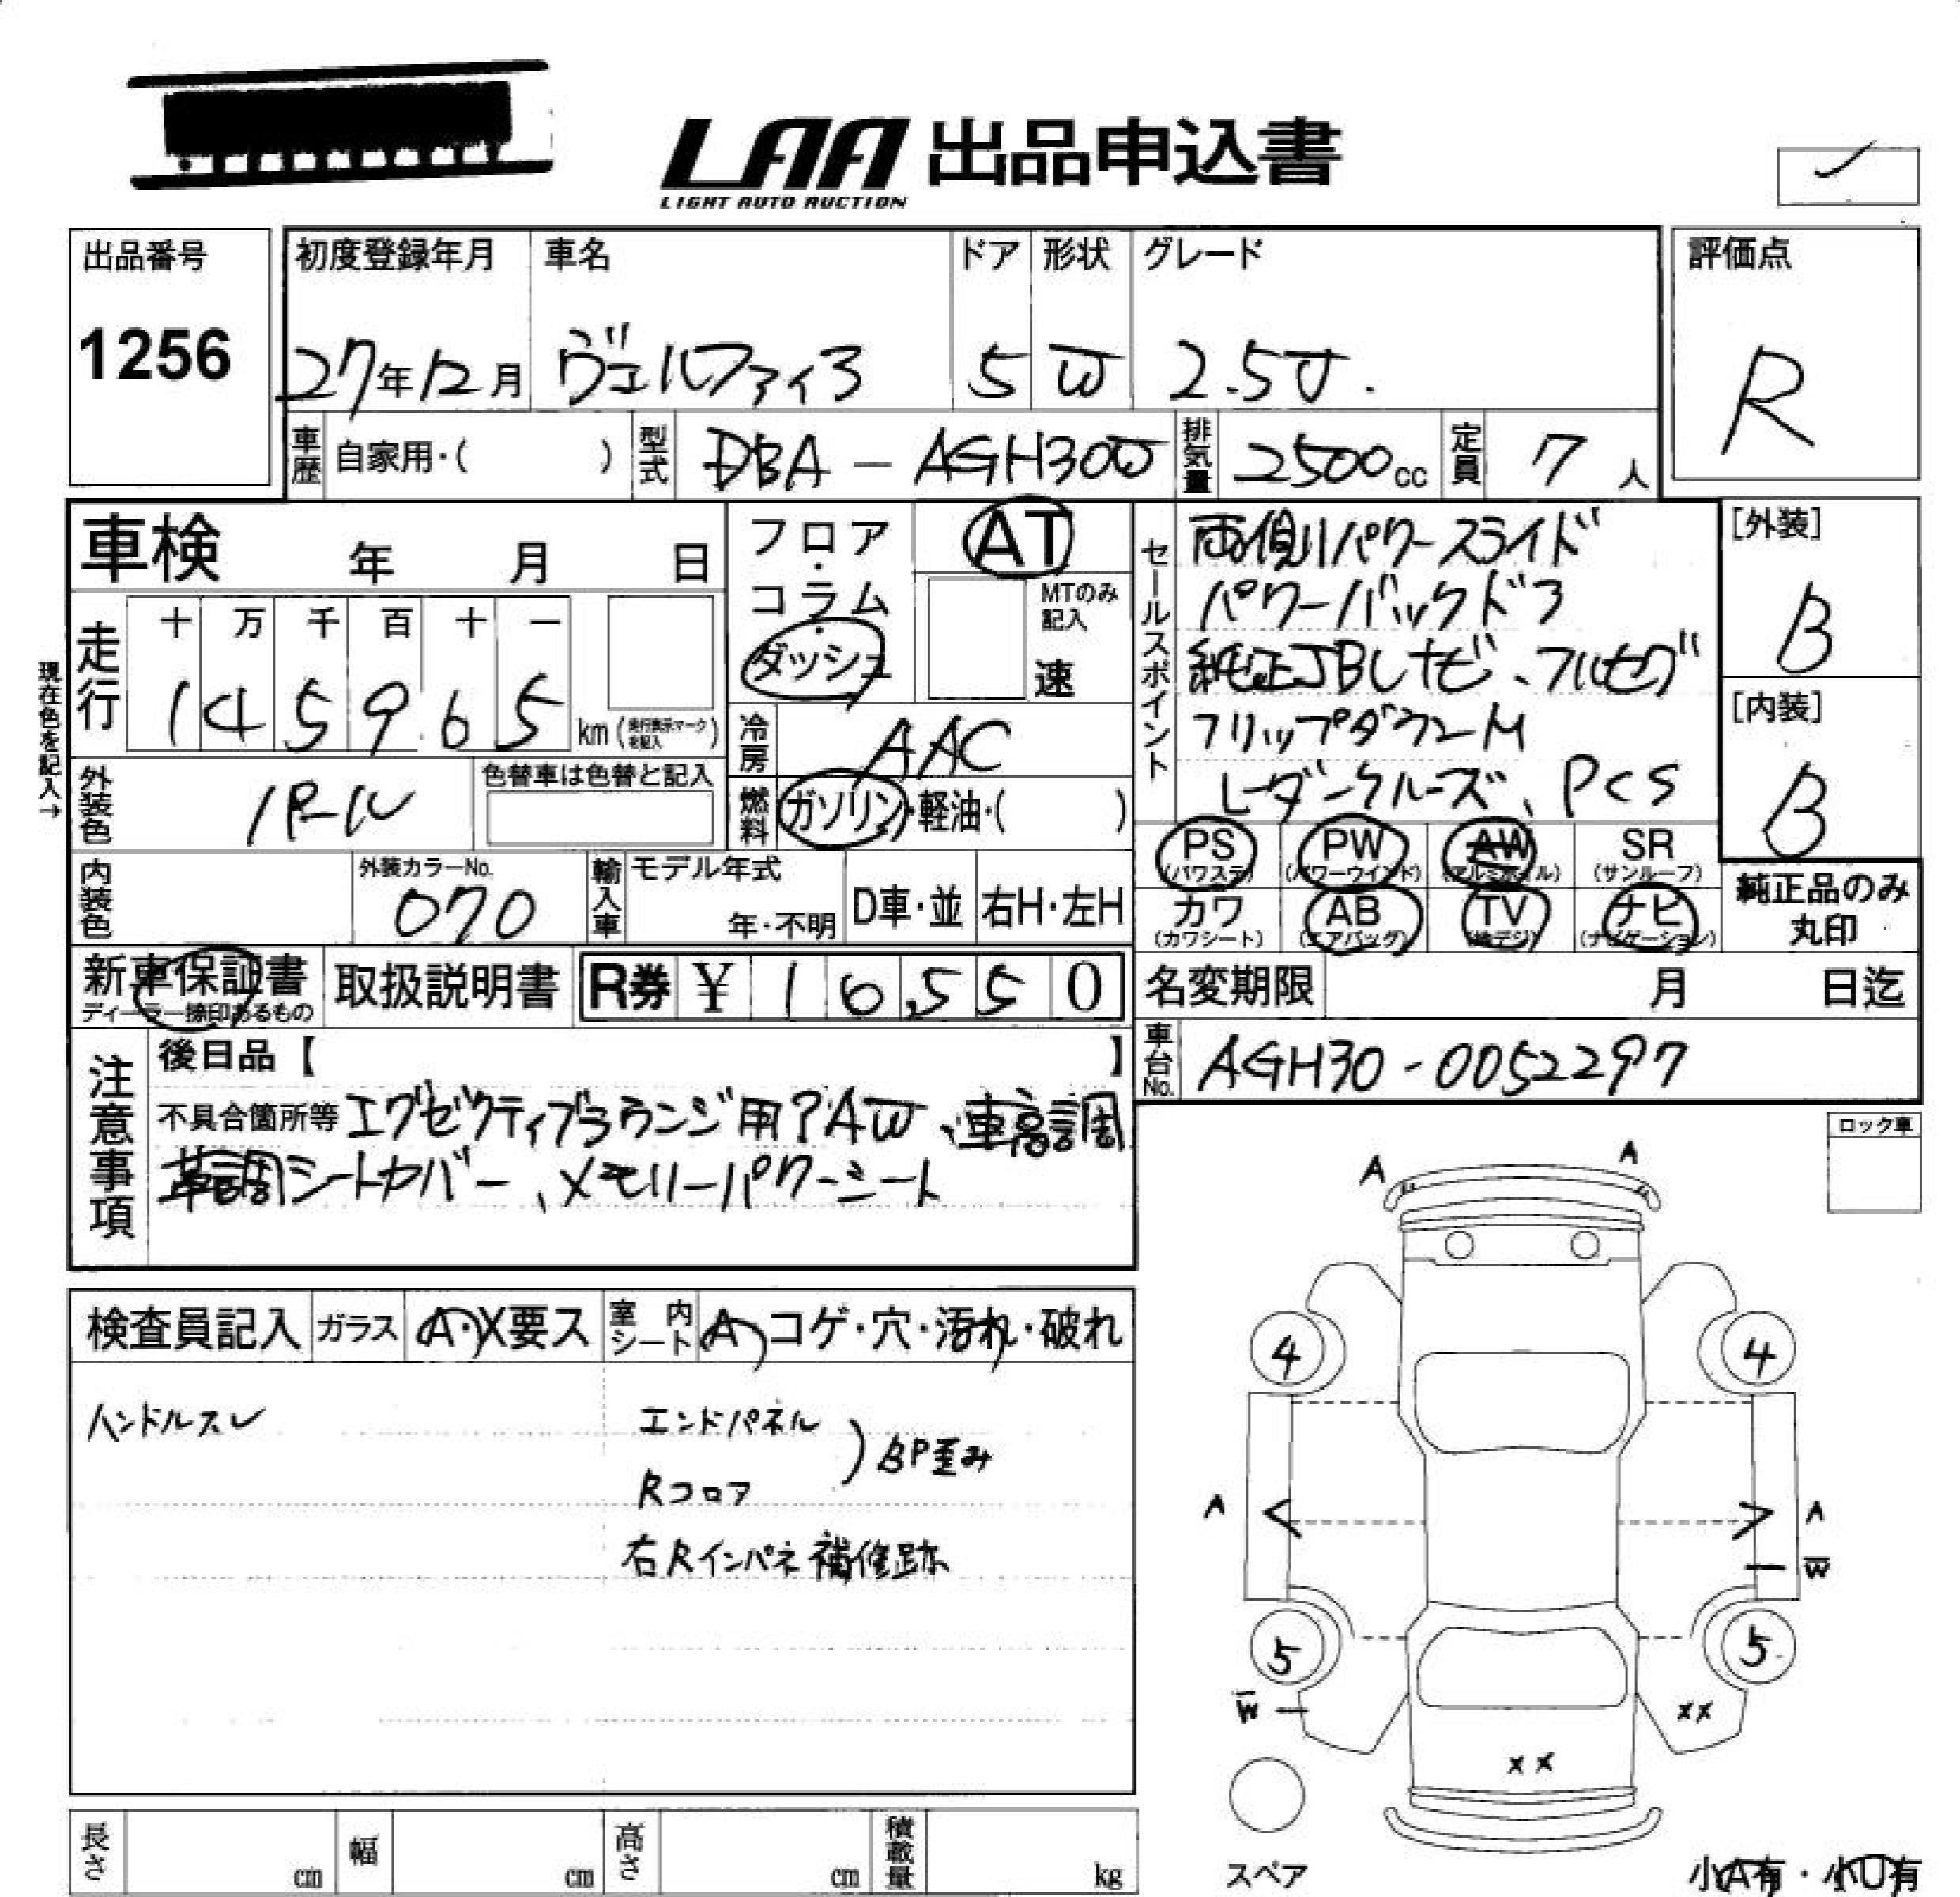 LAA 出品申込書
LIGHT AUTO AUCTION
出品番号
1256
初度登録年月 車名 ドア 形状 グレード
27年12月 ヴェルファイア 5 W 2.5V.
評価点
R
車歴 自家用・( ) 型式 DBA - AGH30W 排気量 2500cc 定員 7人
車検 年 月 日
フロア・コラム・ダッシュ
AT
MTのみ記入
速
現在色を記入→
走行 十 万 千 百 十 一
145965 km (走行表示マークを記入)
冷房 AAC
燃料 ガソリン・軽油・( )
外装色 パール
色替車は色替と記入
内装色
外装カラーNo.
070
輸入車 モデル年式
年・不明 D車・並 右H・左H
セールスポイント
両側パワースライド
パワーバックドア
純正JBLナビ、フルセグ
フリップダウンM
レーダークルーズ、PCS
[外装]
B
[内装]
B
PS (パワステ) PW (パワーウインド) AW (アルミホイル) SR (サンルーフ)
カワ (カワシート) AB (エアバッグ) TV (地デジ) ナビ (ナビゲーション)
純正品のみ丸印
新車保証書
ディーラー捺印あるもの
取扱説明書 R券 ¥ 16,550
名変期限 月 日迄
車台No. AGH30-0052297
注意事項
後日品【 】
不具合箇所等 エグゼクティブラウンジ用?AW、車高調
革調シートカバー、メモリーパワーシート
ロック車
検査員記入 ガラス A・X要ス 室内シート A コゲ・穴・汚れ・破れ
ハンドルスレ
エンドパネル
Rフロア
BP歪み
右Rインパネ補修跡
A A
4 4
A A
W
5 5
W
XX
XX
スペア
小A有・小U有
長さ cm 幅 cm 高さ cm 積載量 kg